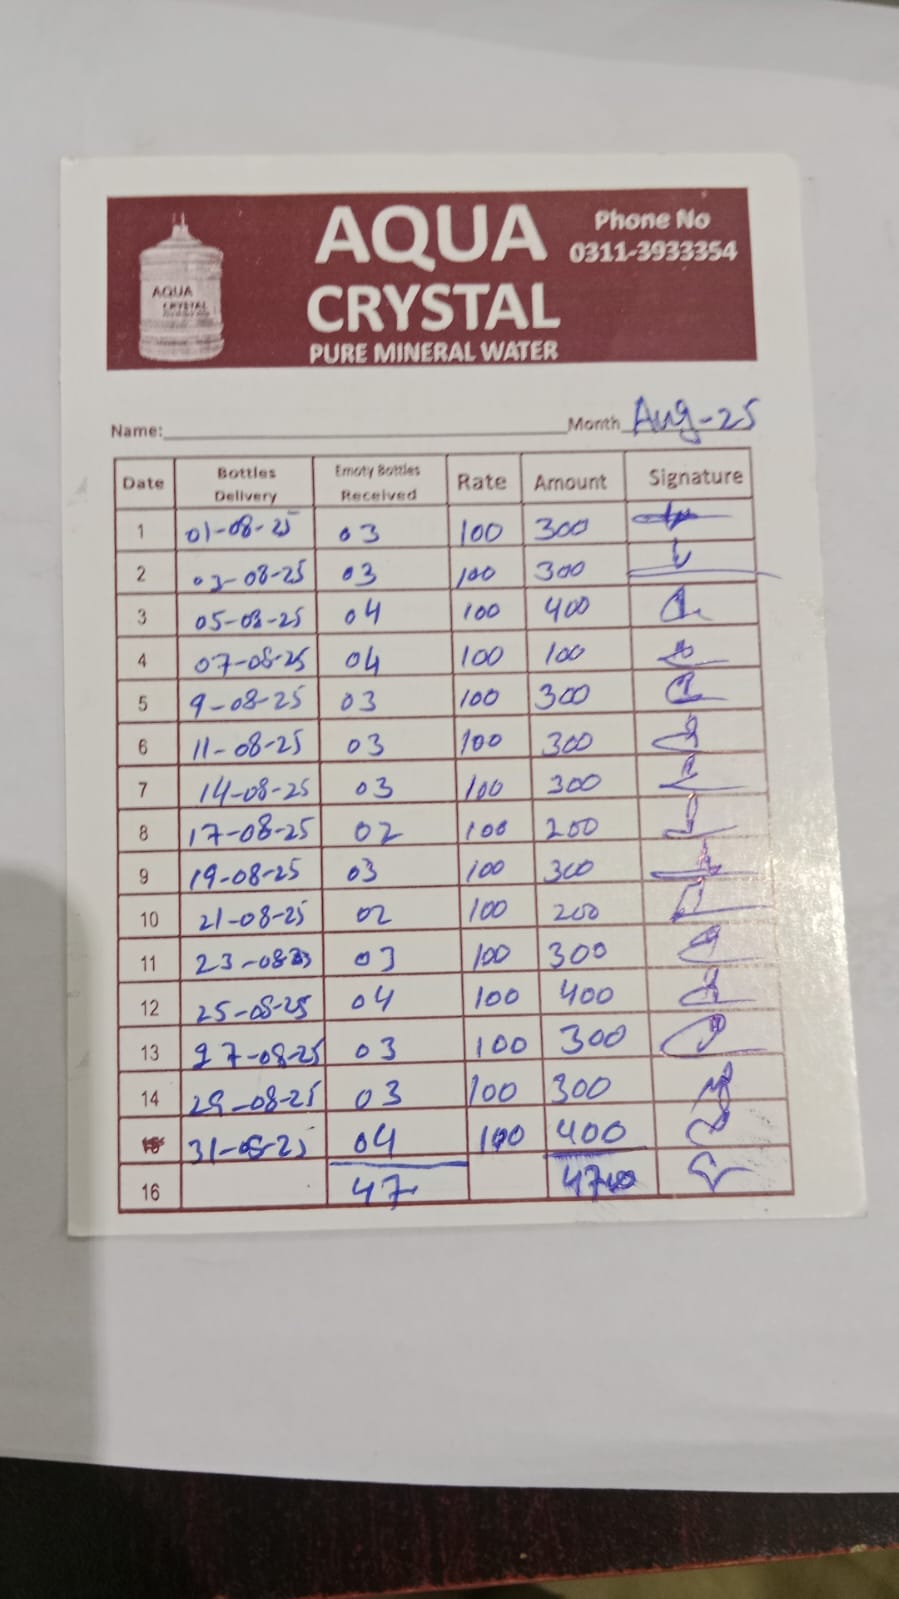 AQUA
CRYSTAL
PURE MINERAL WATER
Phone No
0311-3933354
AQUA
CRYSTAL
Name: Month Aug-25
Date Bottles Delivery Emoty Bottles Received Rate Amount Signature
1 01-08-25 03 100 300
2 03-08-25 03 100 300
3 05-08-25 04 100 400
4 07-08-25 04 100 100
5 9-08-25 03 100 300
6 11-08-25 03 100 300
7 14-08-25 03 100 300
8 17-08-25 02 100 200
9 19-08-25 03 100 300
10 21-08-25 02 100 200
11 23-08 03 100 300
12 25-08-25 04 100 400
13 27-08-25 03 100 300
14 29-08-25 03 100 300
15 31-08-25 04 100 400
16 47 4700